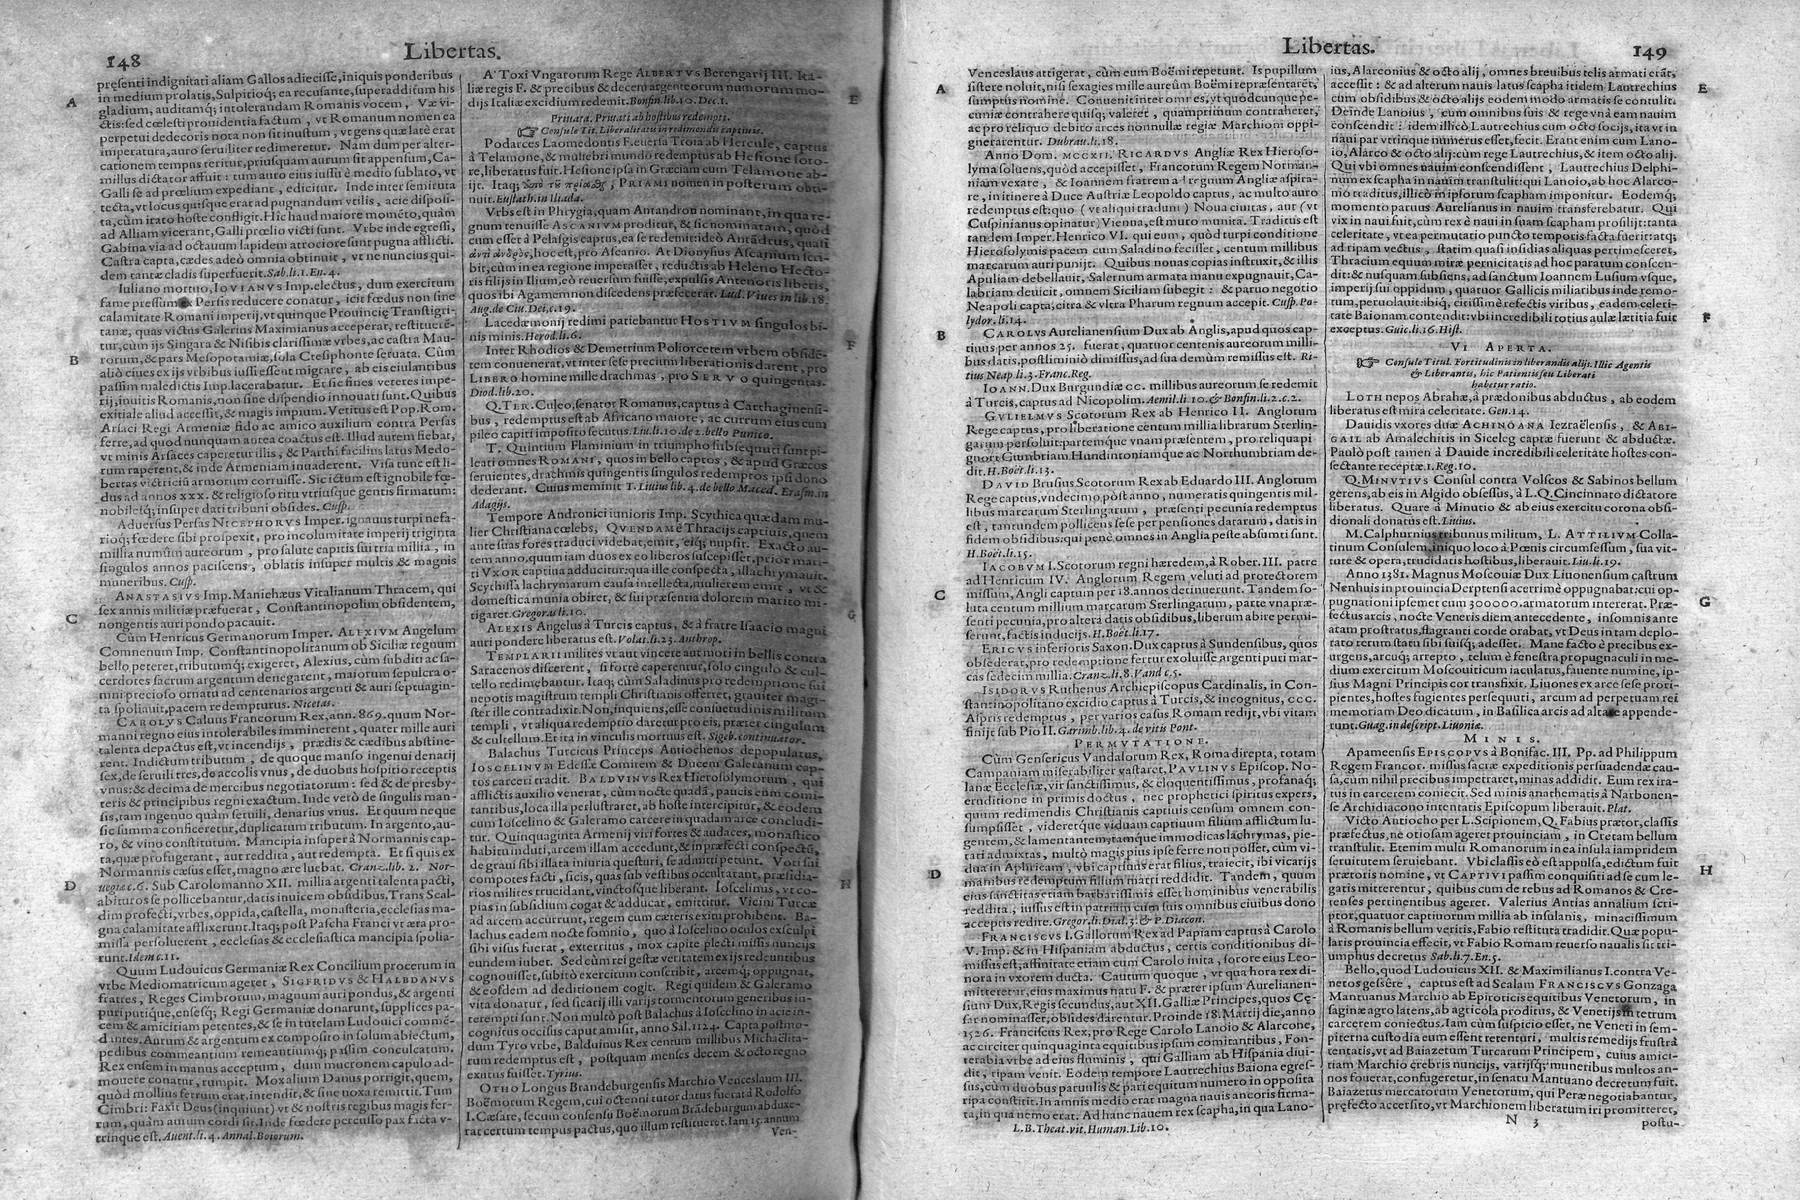 148 Libertas.
presenti indignitati aliam Gallos adiecisse, iniquis ponderibus
in medium prolatis, Sulpitioq; ea recusante, superadditum his
A gladium, auditamq; intolerandam Romanis vocem, Væ vi-
ctis: sed cœlesti prouidentia factum, vt Romanum nomen ea
perpetui dedecoris nota non sit inustum, vt gens quæ latè erat
imperatura, auro seruiliter redimeretur. Nam dum per alter-
cationem tempus teritur, priusquam aurum sit appensum, Ca-
millus dictator affuit: tum auro eius iussu è medio sublato, vt
Galli se ad prœlium expediant, edicitur. Inde intersemiruta
tecta, vt locus quisque erat ad pugnandum vtilis, acie disposi-
ta, cùm irato hoste confligit. Hic haud maiore mométo, quàm
ad Alliam vicerant, Galli prœlio victi sunt. Vrbe inde egressi,
Gabina via ad octauum lapidem atrociore sunt pugna afflicti.
Castra capta, cædes adeò omnia obtinuit, vt ne nuncius qui-
dem tantæ cladis superfuerit. Sab. li. 1. En. 4.
Iuliano mortuo, IOVIANVS Imp. electus, dum exercitum
fame pressum ex Persis reducere conatur, icit fœdus non sine
calamitate Romani imperij, vt quinque Prouincię Transtigri-
tanæ, quas victus Galerius Maximianus acceperat, restitueré-
tur, cùm ijs Singara & Nisibis clarissimæ vrbes, ac castra Mau-
B rorum, & pars Mesopotamiæ, sola Ctesiphonte seruata. Cùm
aliò ciues ex ijs vrbibus iussi essent migrare, ab eis eiulantibus
passim maledictis Imp. lacerabatur. Et si e fines veteres impe-
rij, inuitis Romanis, non sine dispendio innouati sunt. Quibus
exitiale aliud accessit, & magis impium. Vetitus est Pop. Rom.
Arsaci Regi Armeniæ fido ac amico auxilium contra Persas
ferre, ad quod nunquam antea coactus est. Illud autem fiebat,
vt minis Arsaces caperetur illis, & Parthi facilius latus Medo-
rum raperent, & inde Armeniam inuaderent. Visa tunc est li-
bertas victricium armorum corruisse. Sic ictum est ignobile fœ-
dus ad annos XXX. & religioso ritu vtriusque gentis firmatum:
nobilesq; insuper dati tribuni obsides. Cusp.
Aduersus Persas NICEPHORVS Imper. ignauus turpi nefa-
rioq; fœdere sibi prospexit, pro incolumitate imperij triginta
millia numûm aureorum, pro salute capitis sui tria millia, in
singulos annos paciscens, oblatis insuper multis & magnis
muneribus. Cusp.
ANASTASIVS Imp. Manichæus Vitalianum Thracem, qui
sex annis militiæ præfuerat, Constantinopolim obsidentem,
C nongentis auri pondo pacauit.
Cùm Henricus Germanorum Imper. ALEXIVM Angelum
Comnenum Imp. Constantinopolitanum ob Siciliæ regnum
bello peteret, tributumq; exigeret, Alexius, cùm subditi ac sa-
cerdotes sacrum argentum denegarent, maiorum sepulcra o-
mni precioso ornatu ad centenarios argenti & auri septuagin-
ta spoliauit, pacem redempturus. Nicetas.
CAROLVS Caluus Francorum Rex, ann. 869. quum Nor-
manni regno eius intolerabiles imminerent, quater mille auri
talenta depactus est, vt incendijs, prædis & cædibus abstine-
rent. Indictum tributum, de quoque manso ingenui denarij
sex, de seruili tres, de accolis vnus, de duobus hospitio receptis
vnus: & decima de mercibus negotiatorum: sed & de presby-
teris & principibus regni exactum. Inde verò de singulis man-
sis, tam ingenuo quàm seruili, denarius vnus. Et quum neque
sic summa conficeretur, duplicatum tributum. In argento, au-
ro, & vino constitutum. Mancipia insuper à Normannis cap-
ta, quæ profugerant, aut reddita, aut redempta. Et si quis ex
Normannis cæsus esset, magno ære luebat. Cranz. lib. 2. Nor-
D uegiæ c. 6. Sub Carolomanno XII. millia argenti talenta pacti,
abituros se pollicebantur, datis inuicem obsidibus. Trans Scal-
dim profecti, vrbes, oppida, castella, monasteria, ecclesias ma-
gna calamitate afflixerunt. Itaq; post Pascha Franci vt æra pro-
missa persoluerent, ecclesias & ecclesiastica mancipia spolia-
runt. Idem c. 11.
Quum Ludouicus Germaniæ Rex Concilium procerum in
vrbe Mediomatricum ageret, SIGFRIDVS & HALBDANVS
fratres, Reges Cimbrorum, magnum auri pondus, & argenti
puri putique, ensesq; Regi Germaniæ donarunt, supplices pa-
cem & amicitiam petentes, & se in tutelam Ludouici commé-
dantes. Aurum & argentum ex composito in solum abiectum,
pedibus commeantium remeantiumq; passim conculcatum.
Rex ensem in manus acceptum, dum mucronem capulo ad-
mouere conatur, rumpit. Moxalium Danus porrigit, quem,
quòd mollius ferrum erat, intendit, & sine noxa remittit. Tum
Cimbri: Faxit Deus (inquiunt) vt & nostris regibus magis fer-
rum, quàm aurum cordi sit. Inde fœdere percusso pax facta v-
trinque est. Auent. li. 4. Annal. Boiorum.
A' Toxi Vngarorum Rege ALBERTVS Berengarij III. Ita-
liæ regis F. & precibus & decem argenteorum numorum mo-
dijs Italiæ excidium redemit. Bonfin. lib. 10. Dec. 1. E
Priuata. Priuati ab hostibus redempti.
☞ Consule Tit. Liberalitatis in redimendis captiuis.
Podarces Laomedontis F. euersa Troia ab Hercule, captus
à Telamone, & muliebri mundo redemptus ab Hesione soro-
re, liberatus fuit. Hesione ipsa in Græciam cum Telamone ab-
ijt. Itaq; ἀπὸ τοῦ πρίασθαι, PRIAMI nomen in posterum obti-
nuit. Eustath. in Iliada.
Vrbs est in Phrygia, quam Antandron nominant, in qua re-
gnum tenuisse ASCANIVM proditur, & sic nominatam, quòd
cum esset à Pelasgis captus, ea se redemit: ideò Antādrus, quasi
ἀντὶ ἀνδρὸς, hoc est, pro Ascanio. At Dionysius Ascanium scri-
bit, cùm in ea regione imperasset, reductis ab Heleno Hecto-
ris filijs in Ilium, eò reuersum fuisse, expulsis Antenoris liberis,
quos ibi Agamemnon discedens præfecerat. Lud. Viues in lib. 18.
Aug. de Ciu. Dei, c. 19.
Lacedæmonij redimi patiebantur HOSTIVM singulos bi-
nis minis. Herod. li. 6. F
Inter Rhodios & Demetrium Poliorcetem vrbem obsidé-
tem conuenerat, vt inter sese precium liberationis darent, pro
LIBERO homine mille drachmas, pro SERVO quingentas.
Diod. lib. 20.
Q. TER. Culeo, senator Romanus, captus à Carthaginensi-
bus, redemptus est ab Africano maiore, ac currum eius cum
pileo capiti imposito secutus. Liu. li. 10. de 2. bello Punico.
T. Quintium Flaminium in triumpho subsequuti sunt pi-
leati omnes ROMANI, quos in bello captos, & apud Græcos
seruientes, drachmis quingentis singulos redemptos ipsi dono
dederant. Cuius meminit T. Liuius lib. 4. de bello Maced. Erasm. in
Adagijs.
Tempore Andronici iunioris Imp. Scythica quædam mu-
lier Christiana cœlebs, QVENDAM è Thracijs captiuis, quem
ante suas fores traduci videbat, emit, eiq; nupsit. Exacto au-
tem anno, quum iam duos ex eo liberos suscepisset, prior mari-
ti VXOR captiua adducitur: qua illie conspecta, illachrymauit.
Scythissa lachrymarum causa intellecta, mulierem emit, vt &
domestica munia obiret, & sui præsentia dolorem marito mi-
tigaret. Gregoras li. 10. G
ALEXIS Angelus à Turcis captus, & à fratre Isaacio magni
auri pondere liberatus est. Volat. li. 23. Anthrop.
TEMPLARII milites vt aut vincere aut mori in bellis contra
Saracenos discerent, si fortè caperentur, solo cingulo & cul-
tello redimebantur. Itaq; cùm Saladinus pro redemptione sui
nepotis magistrum templi Christianis offerret, grauiter magi-
ster ille contradixit. Non, inquiens, esse consuetudinis militum
templi, vt aliqua redemptio daretur pro eis, præter cingulum
& cultellum. Et ita in vinculis mortuus est. Sigeb. continuator.
Balachus Turcicus Princeps Antiochenos depopulatus,
IOSCELINVM Edessæ Comitem & Ducem Galeranum cap-
tos carceri tradit. BALDVINVS Rex Hierosolymorum, qui
afflictis auxilio venerat, cùm nocte quadā, paucis eum comi-
tantibus, loca illa perlustraret, ab hoste intercipitur, & eodem
cum Ioscelino & Galeramo carcere in quadam arce concludi-
tur. Quinquaginta Armenij viri fortes & audaces, monastico
habitu induti, arcem illam accedunt, & in præfecti conspectū,
de graui sibi illata iniuria questuri, se admitti petunt. Voti sui
compotes facti, sicis, quas sub vestibus occultarant, præsidia-
rios milites trucidant, vinctosque liberant. Ioscelinus, vt co- H
pias in subsidium cogat & adducat, emittitur. Vicini Turcæ
ad arcem accurrunt, regem cum cæteris exitu prohibent. Ba-
lachus eadem nocte somnio, quo à Ioscelino oculos exsculpi
sibi visus fuerat, exterritus, mox capite plecti missis nuncijs
eundem iubet. Sed cùm rei gestæ veritatem ex ijs redeuntibus
cognouisset, subitò exercitum conscribit, arcemq; oppugnat,
& eosdem ad deditionem cogit. Regi quidem & Galeramo
vita donatur, sed sicarij illi varijs tormentorum generibus in-
terempti sunt. Non multò post Balachus à Ioscelino in acie in-
cognitus occisus caput amisit, anno Sal. 1124. Capta postmo-
dum Tyro vrbe, Balduinus Rex centum millibus Michaëlita-
rum redemptus est, postquam menses decem & octo regno
exutus fuisset. Tyrius.
OTHO Longus Brandeburgensis Marchio Venceslaum III.
Boëmorum Regem, cui octenni tutor datus fuerat à Rodolfo
I. Cæsare, secum consensu Boëmorum Brādeburgum abduxe-
rat certum tempus pactus, quo illum restitueret. Iam 15. annum
Ven-
Libertas. 149
Venceslaus attigerat, cùm eum Boëmi repetunt. Is pupillum
A sistere noluit, nisi sexagies mille aureûm Boëmi repræsentarēt,
sumptus nomine. Conuenit inter omnes, vt quodcunque pe-
cuniæ contrahere quisq; valeret, quamprimum contraheret,
ac pro reliquo debito arces nonnullæ regiæ Marchioni oppi-
gnerarentur. Dubrau. li. 18.
Anno Dom. MCCXII, RICARDVS Angliæ Rex Hieroso-
lyma soluens, quòd accepisset, Francorum Regem Norman-
niam vexare, & Ioannem fratrem ad regnum Angliæ aspira-
re, in itinere à Duce Austriæ Leopoldo captus, ac multo auro
redemptus est: quo (vt aliqui tradunt) Noua ciuitas, aut (vt
Cuspinianus opinatur) Vienna, est muro munita. Traditus est
tandem Imper. Henrico VI. qui eum, quòd turpi conditione
Hierosolymis pacem cum Saladino fecisset, centum millibus
marcarum auri punijt. Quibus nouas copias instruxit, & illis
Apuliam debellauit, Salernum armata manu expugnauit, Ca-
labriam deuicit, omnem Siciliam subegit: & paruo negotio
Neapoli capta, citra & vltra Pharum regnum accepit. Cusp. Po-
lydor. li. 14.
B CAROLVS Aurelianensium Dux ab Anglis, apud quos cap-
tiuus per annos 25. fuerat, quatuor centenis aureorum milli-
bus datis, postliminiò dimissus, ad sua demùm remissus est. Ri-
tius Neap li. 3. Franc. Reg.
IOANN. Dux Burgundiæ CC. millibus aureorum se redemit
à Turcis, captus ad Nicopolim. Aemil. li 10. & Bonfin. li. 2. c. 2.
GVLIELMVS Scotorum Rex ab Henrico II. Anglorum
Rege captus, pro liberatione centum millia librarum Sterlin-
garum persoluit: partemque vnam præsentem, pro reliqua pi
gnori Cumbriam Hundintoniamque ac Northumbriam de-
dit. H. Boët. li. 13.
DAVID Brusius Scotorum Rex ab Eduardo III. Anglorum
Rege captus, vndecimo pòst anno, numeratis quingentis mil-
libus marcarum Sterlingarum, præsenti pecunia redemptus
est, tantundem pollicens sese per pensiones daturum, datis in
fidem obsidibus: qui penè omnes in Anglia peste absumti sunt.
H. Boët. li. 15.
IACOBVM I. Scotorum regni hæredem, à Rober. III. patre
ad Henricum IV. Anglorum Regem veluti ad protectorem
C missum, Angli captum per 18. annos detinuerunt. Tandem so-
luta centum millium marcarum Sterlingarum, parte vna præ-
senti pecunia, pro altera datis obsidibus, liberum abire permi-
serunt, factis inducijs. H. Boët. li. 17.
ERICVS inferioris Saxon. Dux captus à Sundensibus, quos
obsederat, pro redemptione fertur exoluisse argenti puri mar-
cas sedecim millia. Cranz. li. 8. Vand c. 5.
ISIDORVS Ruthenus Archiepiscopus Cardinalis, in Con-
stantinopolitano excidio captus à Turcis, & incognitus, CCC.
Aspris redemptus, per varios casus Romam redijt, vbi vitam
finijt sub Pio II. Garimb. lib. 4. de vitis Pont.
PERMVTATIONE.
Cùm Gensericus Vandalorum Rex, Roma direpta, totam
Campaniam miserabiliter vastaret, PAVLINVS Episcop. No-
lanæ Ecclesiæ, vir sanctissimus, & eloquentissimus, profanaq;
eruditione in primis doctus, nec prophetici spiritus expers,
quum redimendis Christianis captiuis censum omnem con-
sumpsisset, videretque viduam captiuum filium afflictim lu-
gentem, & lamentantem, tamque immodicas lachrymas, pie-
tati admixtas, multò magis pius ipse ferre non posset, cùm vi-
D dua in Aphricam, vbi captiuus erat filius, traiecit, ibi vicarijs
manibus redemptum filium matri reddidit. Tandem, quum
eius sanctitas etiam barbarissimis esset hominibus venerabilis
reddita, iussus est in patriam cum suis omnibus ciuibus dono
acceptis redire. Gregor. li. Dial. 3. & P. Diacon.
FRANCISCVS I. Gallorum Rex ad Papiam captus à Carolo
V. Imp. & in Hispaniam abductus, certis conditionibus di-
missus est, affinitate etiam cum Carolo inita, sorore eius Leo-
nora in vxorem ducta. Cautum quoque, vt qua hora rex di-
mitteretur, eius maximus natu F. & præter ipsum Aurelianen-
sium Dux, Regis secundus, aut XII. Galliæ Principes, quos Cę-
sar nominasset, obsides darentur. Proinde 18. Martij die, anno
1526. Franciscus Rex, pro Rege Carolo Lanoio & Alarcone,
ac circiter quinquaginta equitibus ipsum comitantibus, Fon-
terabia vrbe ad eius fluminis, qui Galliam ab Hispania diui-
dit, ripam venit. Eodem tempore Lautrechius Baiona egres-
sus, cum duobus paruulis & pari equitum numero in opposita
ripa constitit. In amnis medio erat magna nauis ancoris firma-
ta, in qua nemo erat. Ad hanc nauem rex scapha, in qua Lano-
L. B. Theat. vit. Human. Lib. 10.
ius, Alarconius & octo alij, omnes breuibus telis armati erāt,
accessit: & ad alterum nauis latus scapha itidem Lautrechius E
cum obsidibus & octo alijs eodem modo armatis se contulit.
Deinde Lanoius, cum omnibus suis & rege vnà eam nauim
conscendit: idem illicò Lautrechius cum octo socijs, ita vt in
naui par vtrinque numerus esset, fecit. Erant enim cum Lano-
io, Alarco & octo alij: cùm rege Lautrechius, & item octo alij.
Qui vbi omnes nauim conscendissent, Lautrechius Delphi-
num ex scapha in nauim transtulit: qui Lanoio, ab hoc Alarco-
nio traditus, illicò in ipsorum scapham imponitur. Eodemq;
momento paruus Aurelianus in nauim transferebatur. Qui
vix in naui fuit, cùm rex è naui in suam scapham prosilijt: tanta
celeritate, vt ea permutatio puncto temporis facta fuerit: atq;
ad ripam vectus, statim quasi insidias aliquas pertimesceret,
Thracium equum miræ pernicitatis ad hoc paratum conscen-
dit: & nusquam subsistens, ad sanctum Ioannem Lusium vsque,
imperij sui oppidum, quatuor Gallicis miliaribus inde remo-
tum, peruolauit: ibiq; citissimè refectis viribus, eadem celeri-
tate Baionam contendit: vbi incredibili totius aulæ lætitia fuit F
exceptus. Guic. li. 16. Hist.
VI APERTA.
☞ Consule Titul. Fortitudinis in liberandis alijs. Illic Agentis
& Liberantis, hic Patientis seu Liberati
habetur ratio.
LOTH nepos Abrahæ, à prædonibus abductus, ab eodem
liberatus est mira celeritate. Gen. 14.
Dauidis vxores duæ ACHINOANA Iezraëlensis, & ABI-
GAIL ab Amalechitis in Siceleg captæ fuerunt & abductæ.
Paulò post tamen à Dauide incredibili celeritate hostes con-
sectante receptæ. 1. Reg. 10.
Q. MINVTIVS Consul contra Volscos & Sabinos bellum
gerens, ab eis in Algido obsessus, à L. Q. Cincinnato dictatore
liberatus. Quare à Minutio & ab eius exercitu corona obsi-
dionali donatus est. Liuius.
M. Calphurnius tribunus militum, L. ATTILIVM Colla-
tinum Consulem, iniquo loco à Pœnis circumsessum, sua vir-
tute & opera, trucidatis hostibus, liberauit. Liu. li. 19.
Anno 1381. Magnus Moscouiæ Dux Liuonensium castrum
Nenhuis in prouincia Derptensi acerrimè oppugnabat: cui op-
pugnationi ipsemet cum 300000. armatorum intererat. Præ- G
fectus arcis, nocte Veneris diem antecedente, insomnis ante
aram prostratus, flagranti corde orabat, vt Deus in tam deplo-
rato rerum statu sibi suisq; adesset. Mane facto è precibus ex-
urgens, arcuq; arrepto, telum è fenestra propugnaculi in me-
dium exercitum Moscouiticum iaculatus, fauente numine, ip-
sius Magni Principis cor transfixit. Liuones ex arce sese proti-
pientes, hostes fugientes persequuti, arcum ad perpetuam rei
memoriam Deo dicatum, in Basilica arcis ad altare appende-
runt. Guag. in descript. Liuoniæ.
MINIS.
Apameensis EPISCOPVS à Bonifac. III. Pp. ad Philippum
Regem Francor. missus sacræ expeditionis persuadendæ cau-
sa, cùm nihil precibus impetraret, minas addidit. Eum rex ira-
tus in carcerem coniecit. Sed minis anathematis à Narbonen-
se Archidiacono intentatis Episcopum liberauit. Plat.
Victo Antiocho per L. Scipionem, Q. Fabius prætor, classis
præfectus, ne otiosam ageret prouinciam, in Cretam bellum
transtulit. Etenim multi Romanorum in ea insula iampridem
seruitutem seruiebant. Vbi classis eò est appulsa, edictum fuit H
prætoris nomine, vt CAPTIVI passim conquisiti ad se cum le-
gatis mitterentur, quibus cum de rebus ad Romanos & Cre-
tenses pertinentibus ageret. Valerius Antias annalium scri-
ptor, quatuor captiuorum millia ab insulanis, minacissimum
à Romanis bellum veritis, Fabio restituta tradidit. Quæ popu-
laris prouincia effecit, vt Fabio Romam reuerso naualis sit tri-
umphus decretus Sab. li. 7. En. 5.
Bello, quod Ludouicus XII. & Maximilianus I. contra Ve-
netos gessêre, captus est ad Scalam FRANCISCVS Gonzaga
Mantuanus Marchio ab Epiroticis equitibus Venetorum, in
saginæ agro latens, ab agricola proditus, & Venetijs in tetrum
carcerem coniectus. Iam cùm suspicio esset, ne Veneti in sem-
piterna custodia eum essent retenturi, multis remedijs frustrà
tentatis, vt ad Baiazetum Turcarum Principem, cuius amici-
tiam Marchio crebris nuncijs, varijsq; muneribus multos an-
nos fouerat, confugeretur, in senatu Mantuano decretum fuit.
Baiazetus mercatorum Venetorum, qui Peræ negotiabantur,
pręfecto accersito, vt Marchionem liberatum iri promitteret,
N 3 postu-